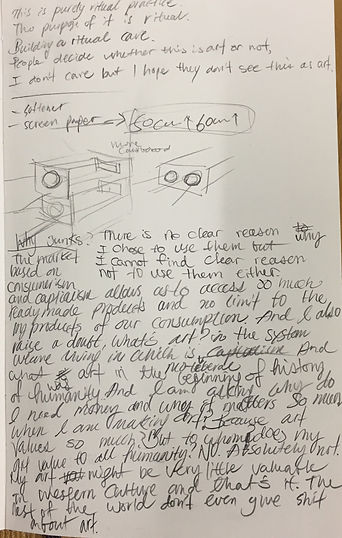 This is purely ritual practice.
The purpose of it is ritual.
Building a ritual cave.
People decide whether this is art or not,
I don't care but I hope they don't see this as art.
- softener
- screen paper → 50cm↑ 60cm↑
more
cardboard
Why Junks? There is no clear reason why
The market I chose to use them but
based on I cannot find clear reason
consumerism not to use them either.
and capitalism allows us to access so much
readymade products and no limit to the
byproducts of our consumption. And I also
raise a doubt, what's art? in the system
we are living in which is capitalism And
what was art in the beginning of history
of humanity. And I am asking why do
I need money and why it matters so much
when I am making art? because art
values so much but to whom? does my
art value to all humanity? NO. Absolutely not.
My art might be very little valuable
In western culture and that's it. The
rest of the world don't even give shit
about art.